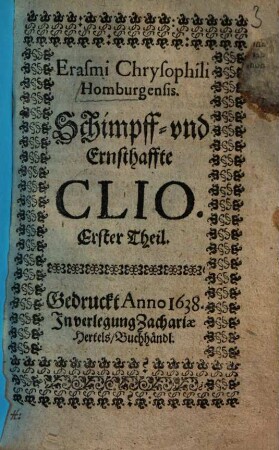 3
Erasmi Chrysophili
Homburgensis.
Schimpff-vnd
Ernsthaffte
CLIO.
Erster Theil.
Gedruckt Anno 1638.
In verlegung Zachariæ
Hertels/Buchhåndl.